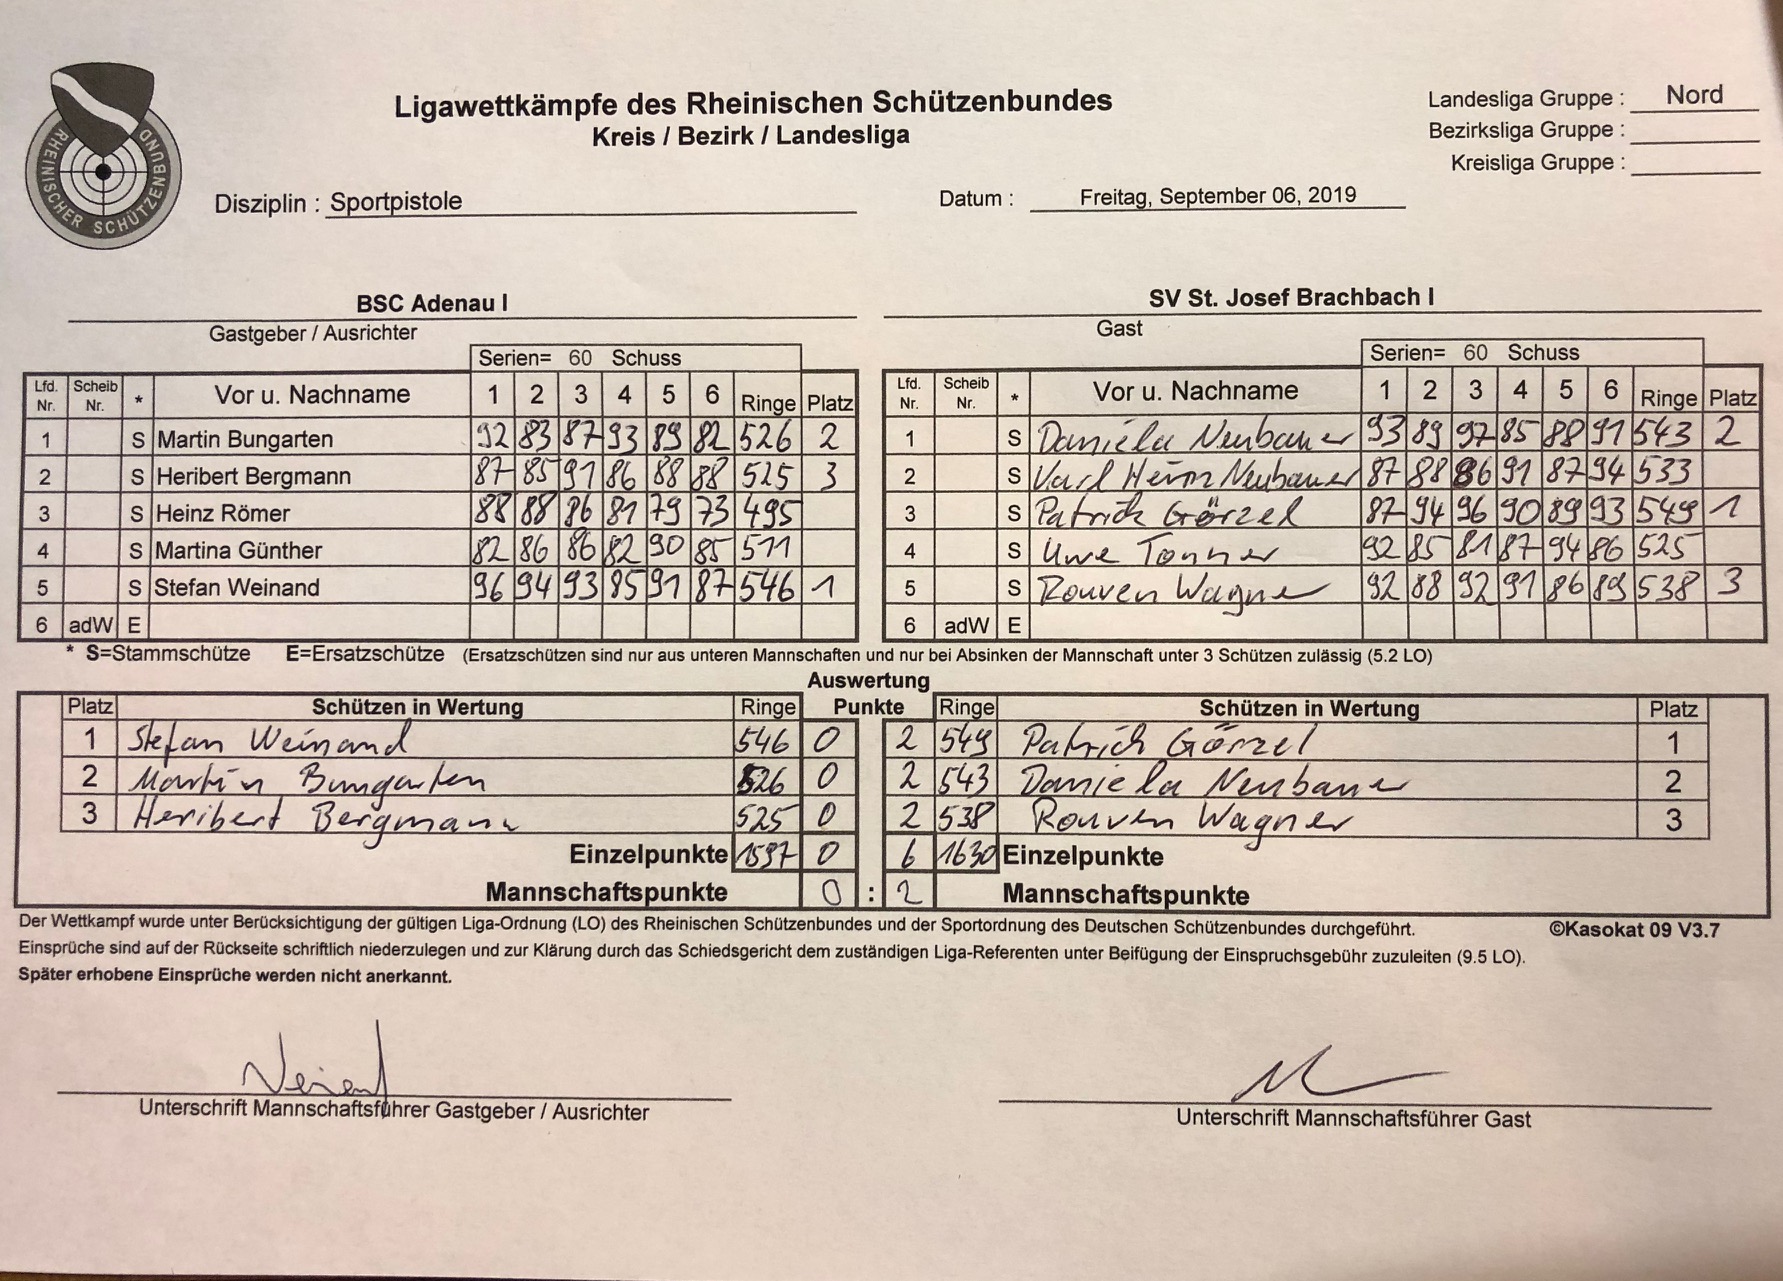 RHEINISCHER SCHÜTZENBUND
Ligawettkämpfe des Rheinischen Schützenbundes
Kreis / Bezirk / Landesliga
Landesliga Gruppe : Nord
Bezirksliga Gruppe :
Kreisliga Gruppe :
Disziplin : Sportpistole
Datum : Freitag, September 06, 2019
BSC Adenau I
Gastgeber / Ausrichter
Serien= 60 Schuss
Lfd. Nr. Scheib Nr. * Vor u. Nachname 1 2 3 4 5 6 Ringe Platz
1 S Martin Bungarten 92 83 87 93 89 82 526 2
2 S Heribert Bergmann 87 85 91 86 88 88 525 3
3 S Heinz Römer 88 88 86 81 79 73 495
4 S Martina Günther 82 86 86 82 90 85 511
5 S Stefan Weinand 96 94 93 85 91 87 546 1
6 adW E
SV St. Josef Brachbach I
Gast
Serien= 60 Schuss
Lfd. Nr. Scheib Nr. * Vor u. Nachname 1 2 3 4 5 6 Ringe Platz
1 S Daniela Neubauer 93 89 97 85 88 91 543 2
2 S Karl Heinz Neubauer 87 88 86 91 87 94 533
3 S Patrick Görzel 87 94 96 90 89 93 549 1
4 S Uwe Tonner 92 85 81 87 94 86 525
5 S Rouven Wagner 92 88 92 91 86 89 538 3
6 adW E
* S=Stammschütze E=Ersatzschütze (Ersatzschützen sind nur aus unteren Mannschaften und nur bei Absinken der Mannschaft unter 3 Schützen zulässig (5.2 LO)
Auswertung
Platz Schützen in Wertung Ringe Punkte Ringe Schützen in Wertung Platz
1 Stefan Weinand 546 0 2 549 Patrick Görzel 1
2 Martin Bungarten 526 0 2 543 Daniela Neubauer 2
3 Heribert Bergmann 525 0 2 538 Rouven Wagner 3
Einzelpunkte 1597 0 6 1630 Einzelpunkte
Mannschaftspunkte 0 : 2 Mannschaftspunkte
Der Wettkampf wurde unter Berücksichtigung der gültigen Liga-Ordnung (LO) des Rheinischen Schützenbundes und der Sportordnung des Deutschen Schützenbundes durchgeführt. ©Kasokat 09 V3.7
Einsprüche sind auf der Rückseite schriftlich niederzulegen und zur Klärung durch das Schiedsgericht dem zuständigen Liga-Referenten unter Beifügung der Einspruchsgebühr zuzuleiten (9.5 LO).
Später erhobene Einsprüche werden nicht anerkannt.
Unterschrift Mannschaftsführer Gastgeber / Ausrichter
Unterschrift Mannschaftsführer Gast